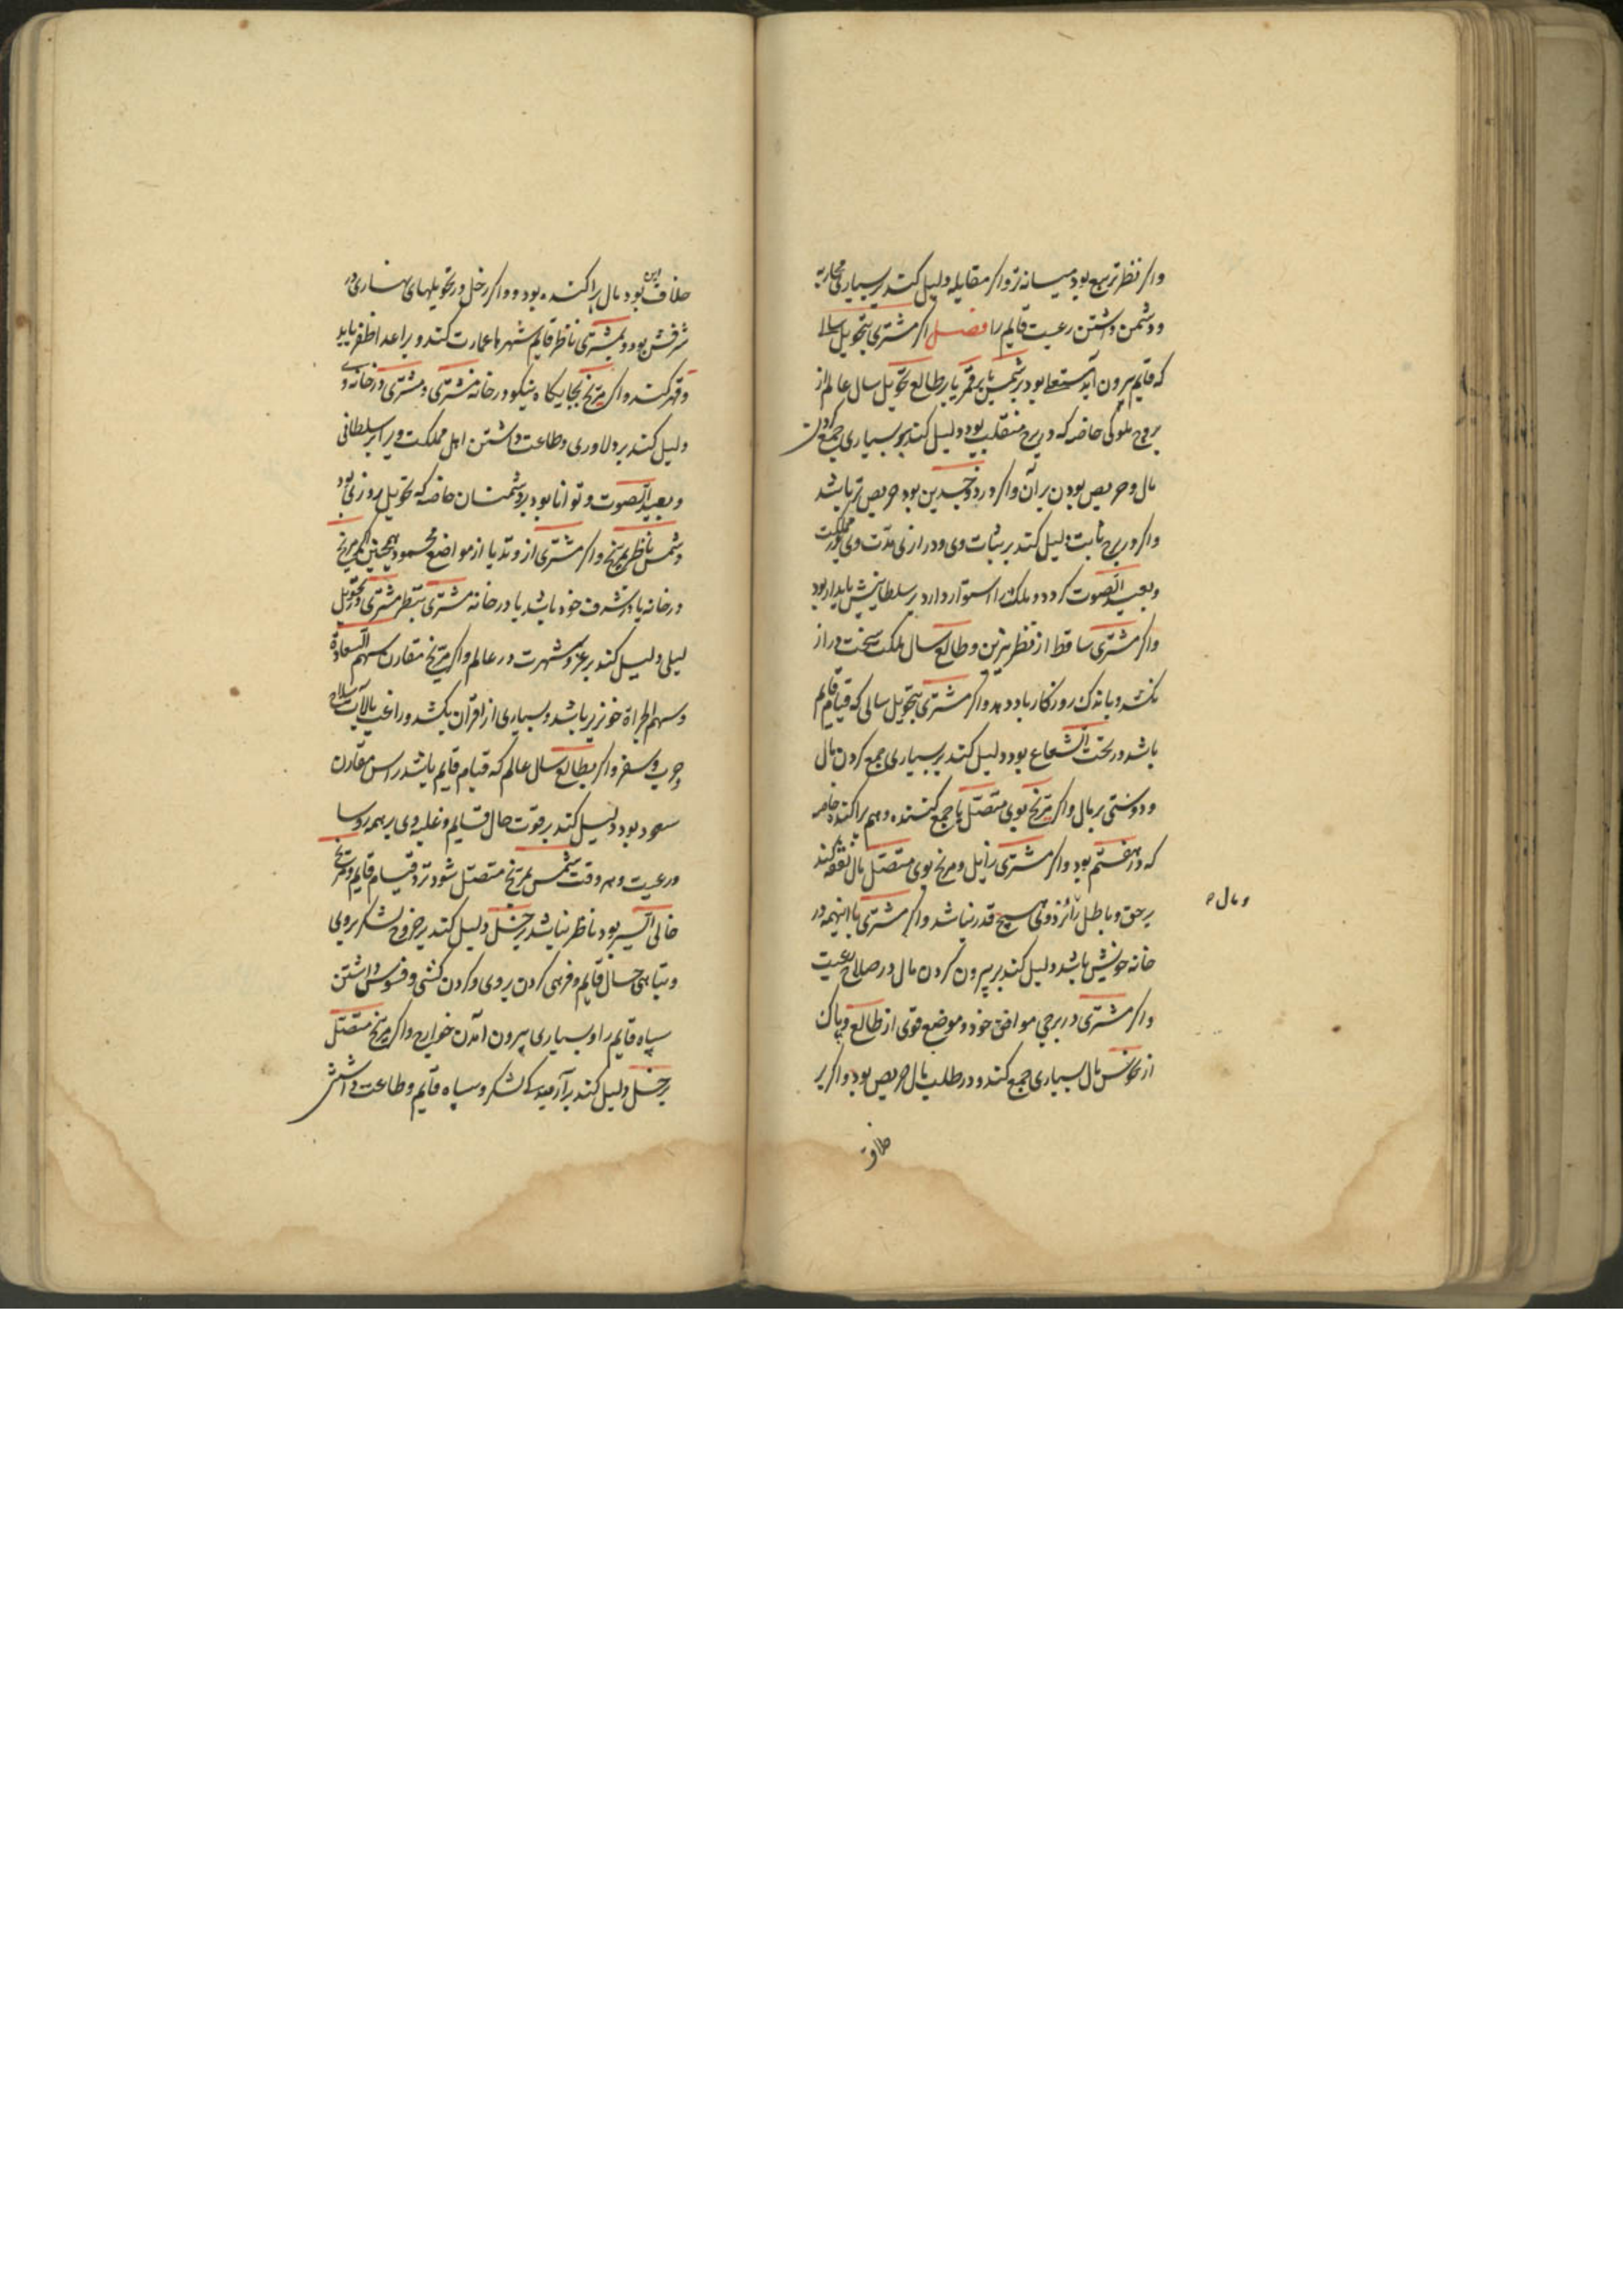 واکر نظر تربیع بود میانه تر واکر مقابله دلیل کند بر بسیاری محاربه
و دشمن داشتن رعیت قایم را فصل اکر مشتری بتحویل سالی
که قایم بیرون آید مستعلی بود بر شمس یا بر قمر یا بر طالع تحویل سال عالم از
بروج ملوکی خاصه که در برج منقلب بود دلیل کند بر بسیاری جمع کردن
مال و حریص بودن بر آن واکر در ذو جسدین بود حریص تر باشد
واکر در برج ثابت دلیل کند بر ثبات وی و درازی مدت وی در مملکت
و بعید الصوت کردد و ملک را استوار دارد بر سلطانیش پایدار بود
واکر مشتری ساقط از نظر نیرین و طالع سال ملکت سخت دراز
نکشد و باندک روزکار باد دهد واکر مشتری بتحویل سالی که قیام قایم
باشد در تحت الشعاع بود دلیل کند بر بسیاری جمع کردن مال
و دوستی بر مال واکر مریخ بوی متصل با جمع کننده و هم پراکنده خاصه
که در هفتم بود واکر مشتری زایل و مریخ بوی متصل مال نفقه کند
بر حق و باطل نزد وی هیچ قدر نباشد واکر مشتری با اینهمه در
و مال ه
خانه خویش باشد دلیل کند بر بیرون کردن مال در صلاح رعیت
واکر مشتری در برجی موافق خود و موضع قوی از طالع و پاک
از نحوس مال بسیاری جمع کند و در طلب مال حریص بود واکر بر
خلاف
خلاف این بود مال پراکنده بود و واکر زحل در تحویلهای نهاری در
شرفش بود و مشتری ناظر قایم شهرها عمارت کند و بر اعدا ظفر یابد
و قهر کند واکر مریخ بجایکاه نیکو در خانه مشتری و مشتری در خانه وی
دلیل کند بر دلاوری و طاعت داشتن اهل مملکت ویرا بر سلطانی
و بعید الصوت و توانا بود بر دشمنان خاصه که تحویل روزی بود
و شمس ناظر بمریخ واکر مشتری از وتد یا از مواضع محمود همچنین اکر مریخ
در خانه یا در شرف خود باشد یا در خانه مشتری بنظر مشتری و تحویل
لیلی دلیل کند بر عز و شهرت در عالم واکر مریخ مقارن سهم السعادة
و سهم الجراة خونریز باشد و بسیاری از اقران بکشد و راغب بآلات سلاح
و حرب و سفر واکر بطالع سال عالم که قیام قایم باشد راس مقارن
سعود بود دلیل کند بر قوت حال قایم و غلبه وی بر همه روسا
و رعیت و هر وقت شمس بمریخ متصل شود نزد قیام قایم و مریخ
خالی السیر بود ناظر نباشد بزحل دلیل کند بر خروج لشکر بروی
و تباهی حال قایم و فرهی کردن بر وی و کردن کشی و فسوس داشتن
سپاه قایم را و بسیاری بیرون آمدن خوارج واکر مریخ متصل
بزحل دلیل کند بر آرمیدکی لشکر و سپاه قایم و طاعت داشتنش